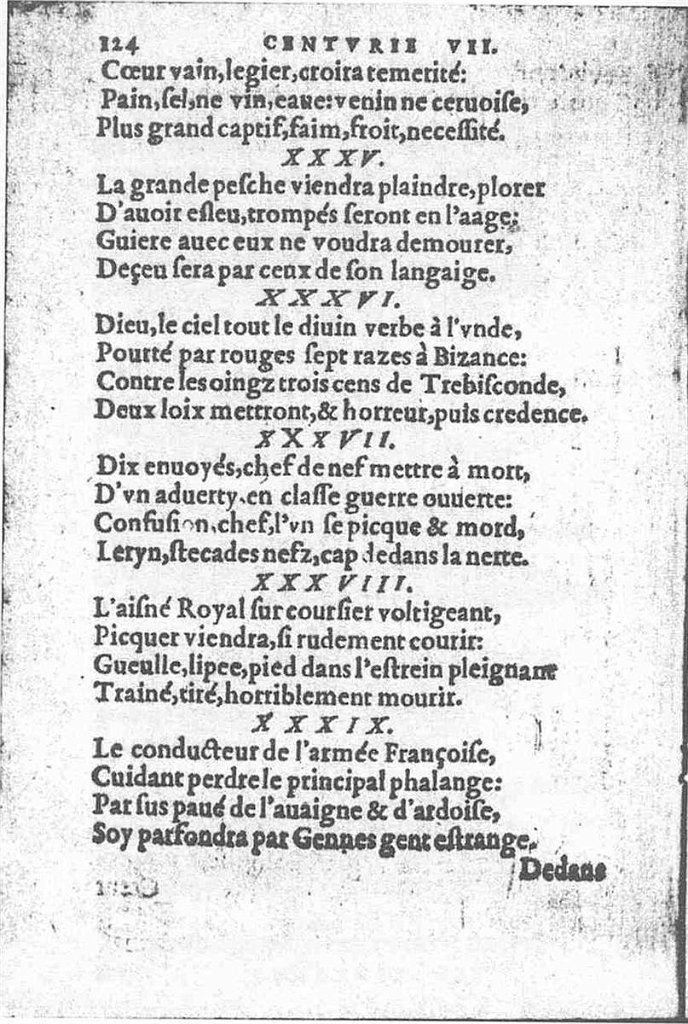 124 CENTVRIE VII.
Cœur vain,legier,croira temerité:
Pain,ſel,ne vin,eaue:venin ne ceruoiſe,
Plus grand captif,faim,froit,neceſſité.
XXXV.
La grande peſche viendra plaindre,plorer
D'auoir eſleu,trompés ſeront en l'aage:
Guiere auec eux ne voudra demourer,
Deçeu ſera par ceux de ſon langaige.
XXXVI.
Dieu,le ciel tout le diuin verbe à l'vnde,
Pourté par rouges ſept razes à Bizance:
Contre les oingz trois cens de Trebiſconde,
Deux loix mettront,& horreur,puis credence.
XXXVII.
Dix enuoyés,chef de nef mettre à mort,
D'vn aduerty,en claſſe guerre ouuerte:
Confuſion,chef,l'vn ſe picque & mord,
Leryn,ſtecades nefz,cap dedans la nerte.
XXXVIII.
L'aiſné Royal ſur courſier voltigeant,
Picquer viendra,ſi rudement courir:
Gueulle,lipee,pied dans l'eſtrein pleignant
Trainé,tiré,horriblement mourir.
XXXIX.
Le conducteur de l'armée Françoiſe,
Cuidant perdre le principal phalange:
Par ſus paué de l'auaigne & d'ardoiſe,
Soy parfondra par Gennes gent eſtrange.
Dedans